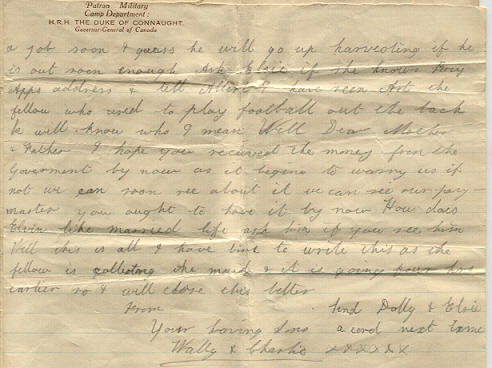 Patron Military
Camp Department:
H.R.H. THE DUKE OF CONNAUGHT,
Governor-General of Canada
a job soon I guess he will go up harvesting if he
is out soon enough Ask Elsie if she knows
Apps address & tell Albert I have seen Art the
fellow who used to play football out the back
he will know who I mean Well Dear Mother
& Father I hope you recieved the money from the
Goverment by now as it begins to worry us if
not we can soon see about it we can see our pay-
master you ought to have it by now How does
Elvin like married life ask him if you see him
Well this is all I have time to write this as the
fellow is collecting the mail & it is going four hrs
earlier so I will close this letter
From Send Dolly & Elsie
Your Loving Sons a card next time
Wally & Charlie xxxxxx